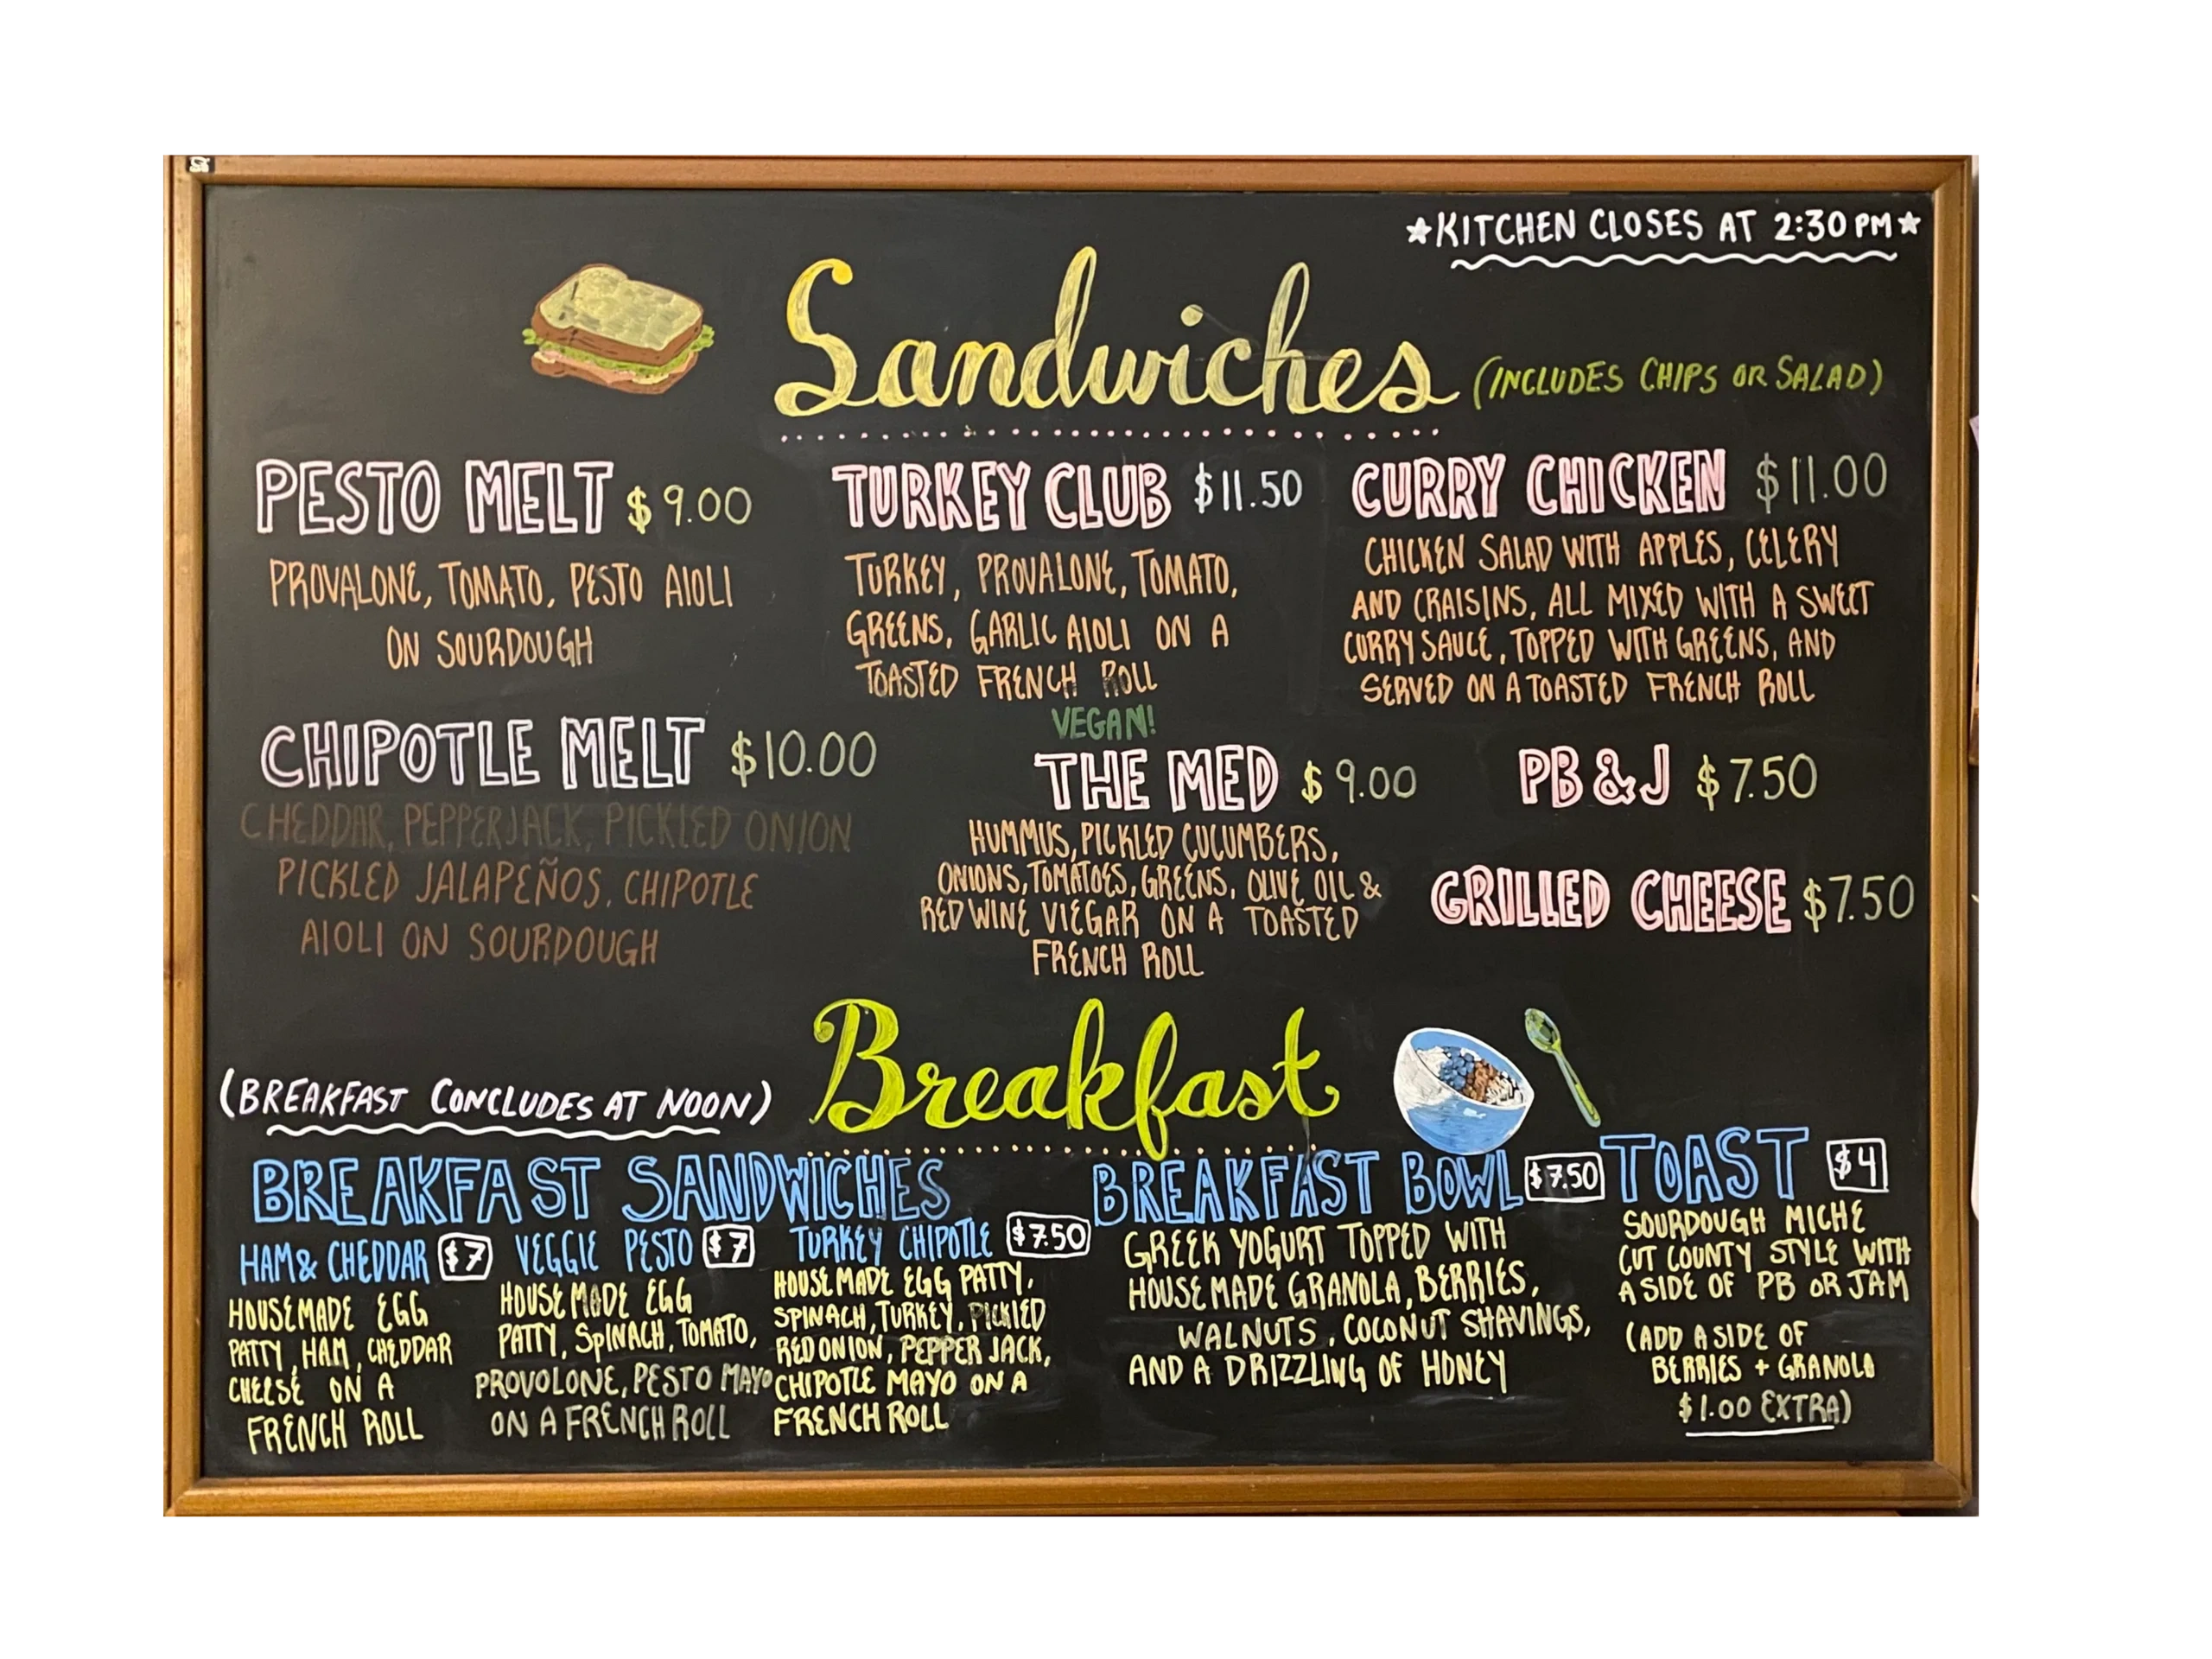 ★KITCHEN CLOSES AT 2:30 PM★
Sandwiches (INCLUDES CHIPS OR SALAD)
PESTO MELT $9.00
PROVALONE, TOMATO, PESTO AIOLI
ON SOURDOUGH
TURKEY CLUB $11.50
TURKEY, PROVALONE, TOMATO,
GREENS, GARLIC AIOLI ON A
TOASTED FRENCH ROLL
CURRY CHICKEN $11.00
CHICKEN SALAD WITH APPLES, CELERY
AND CRAISINS, ALL MIXED WITH A SWEET
CURRY SAUCE, TOPPED WITH GREENS, AND
SERVED ON A TOASTED FRENCH ROLL
CHIPOTLE MELT $10.00
CHEDDAR, PEPPERJACK, PICKLED ONION
PICKLED JALAPEÑOS, CHIPOTLE
AIOLI ON SOURDOUGH
VEGAN!
THE MED $9.00
HUMMUS, PICKLED CUCUMBERS,
ONIONS, TOMATOES, GREENS, OLIVE OIL &
RED WINE VIEGAR ON A TOASTED
FRENCH ROLL
PB & J $7.50
GRILLED CHEESE $7.50
Breakfast
(BREAKFAST CONCLUDES AT NOON)
BREAKFAST SANDWICHES
HAM & CHEDDAR $7
HOUSEMADE EGG
PATTY, HAM, CHEDDAR
CHEESE ON A
FRENCH ROLL
VEGGIE PESTO $7
HOUSEMADE EGG
PATTY, SPINACH, TOMATO,
PROVOLONE, PESTO MAYO
ON A FRENCH ROLL
TURKEY CHIPOTLE $7.50
HOUSEMADE EGG PATTY,
SPINACH, TURKEY, PICKLED
RED ONION, PEPPER JACK,
CHIPOTLE MAYO ON A
FRENCH ROLL
BREAKFAST BOWL $7.50
GREEK YOGURT TOPPED WITH
HOUSEMADE GRANOLA, BERRIES,
WALNUTS, COCONUT SHAVINGS,
AND A DRIZZLING OF HONEY
TOAST $4
SOURDOUGH MICHE
CUT COUNTY STYLE WITH
A SIDE OF PB OR JAM
(ADD A SIDE OF
BERRIES + GRANOLA
$1.00 EXTRA)